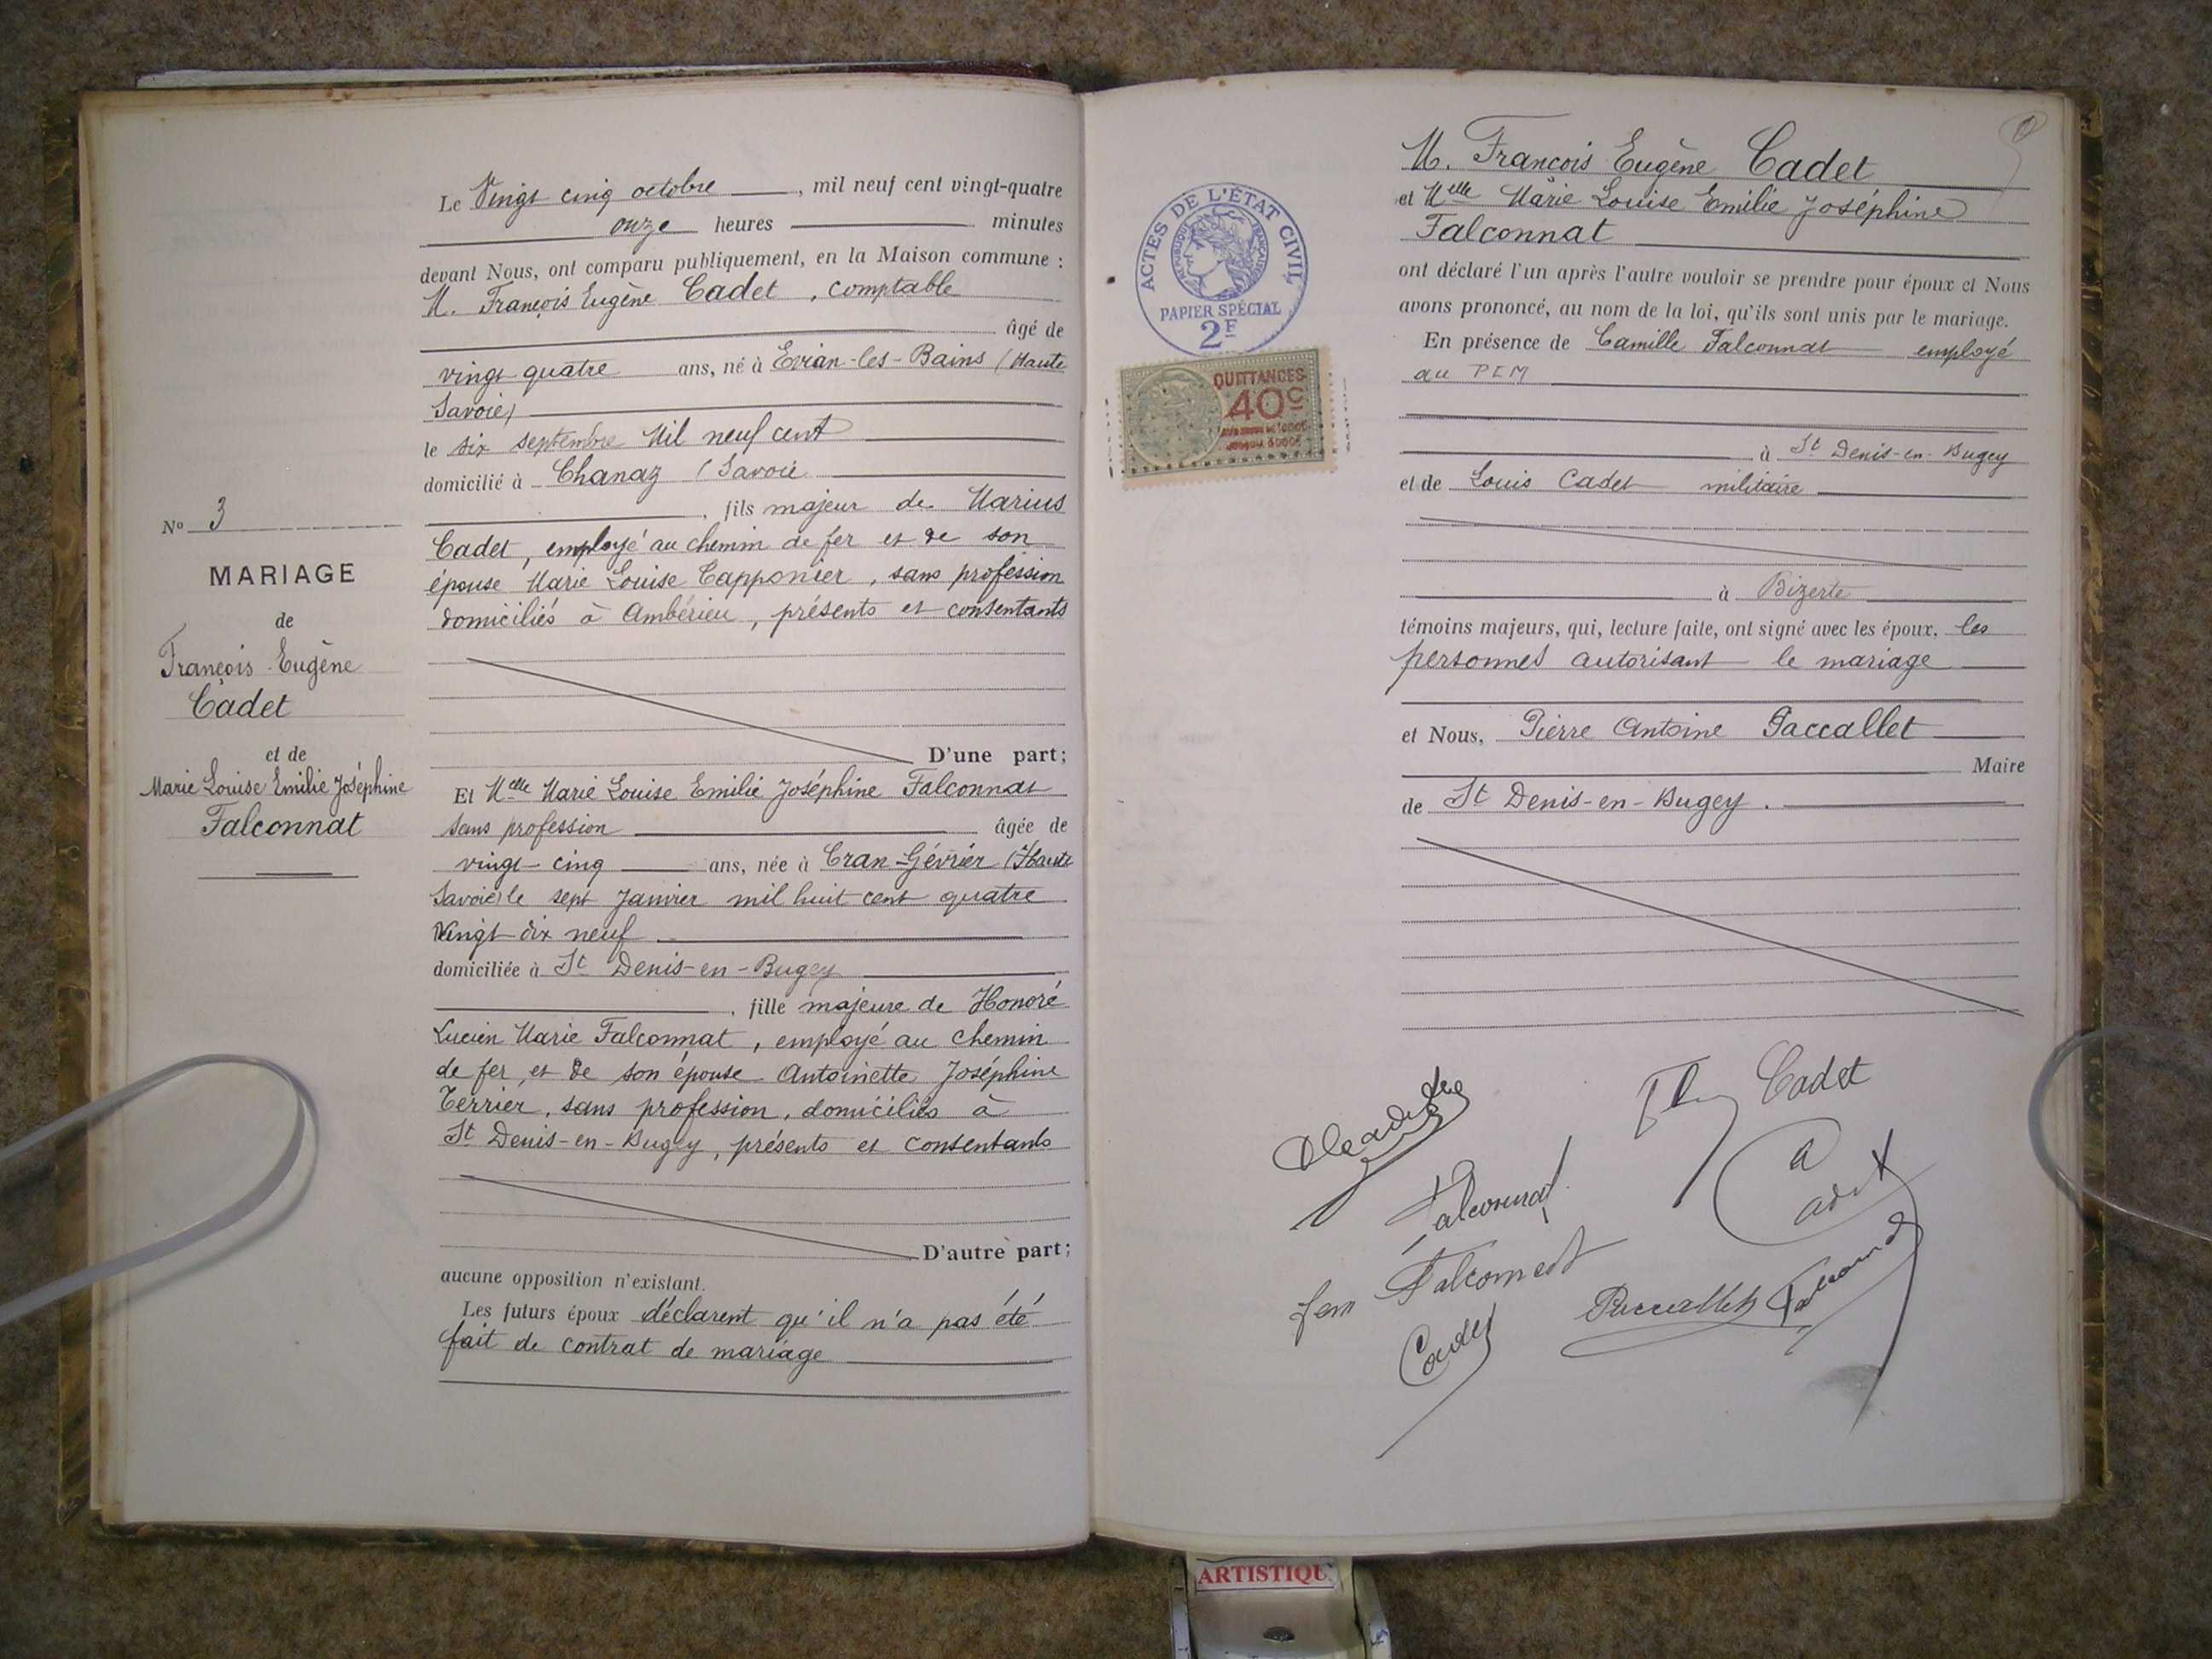 N° 3
MARIAGE
de
François Eugène
Cadet
et de
Marie Louise Emilie Joséphine
Falconnat
Le Vingt cinq octobre, mil neuf cent vingt-quatre
onze heures minutes
devant Nous, ont comparu publiquement, en la Maison commune :
M. François Eugène Cadet, comptable
âgé de
vingt quatre ans, né à Evian-les-Bains (Haute
Savoie)
le six septembre Mil neuf cent
domicilié à Chanaz (Savoie
, fils majeur de Marius
Cadet, employé au chemin de fer et de son
épouse Marie Louise Capponier, sans profession
domiciliés à Ambérieu, présents et consentants
D'une part;
Et Melle Marie Louise Emilie Joséphine Falconnat
sans profession âgée de
vingt-cinq ans, née à Cran-Gévrier (Haute
Savoie) le sept Janvier mil huit cent quatre
Vingt dix neuf
domiciliée à St Denis-en-Bugey
, fille majeure de Honoré
Lucien Marie Falconnat, employé au chemin
de fer, et de son épouse Antoinette Joséphine
Terrier, sans profession, domiciliés à
St Denis-en-Bugey, présents et consentants
D'autre part;
aucune opposition n'existant.
Les futurs époux déclarent qu'il n'a pas été
fait de contrat de mariage
ACTES DE L'ÉTAT CIVIL
RÉPUBLIQUE FRANÇAISE
PAPIER SPÉCIAL
2F
QUITTANCES
40c
M. François Eugène Cadet
et Melle Marie Louise Emilie Joséphine
Falconnat
ont déclaré l'un après l'autre vouloir se prendre pour époux et Nous
avons prononcé, au nom de la loi, qu'ils sont unis par le mariage.
En présence de Camille Falconnat employé
au PLM
à St Denis-en-Bugey
et de Louis Cadet militaire
à Bizerte
témoins majeurs, qui, lecture faite, ont signé avec les époux, les
personnes autorisant le mariage
et Nous, Pierre Antoine Paccallet
Maire
de St Denis-en-Bugey.
Cadet
Cadet
Falconnat
Falconnat
Paccallet
Falconnat
Cadet
ARTISTIQU